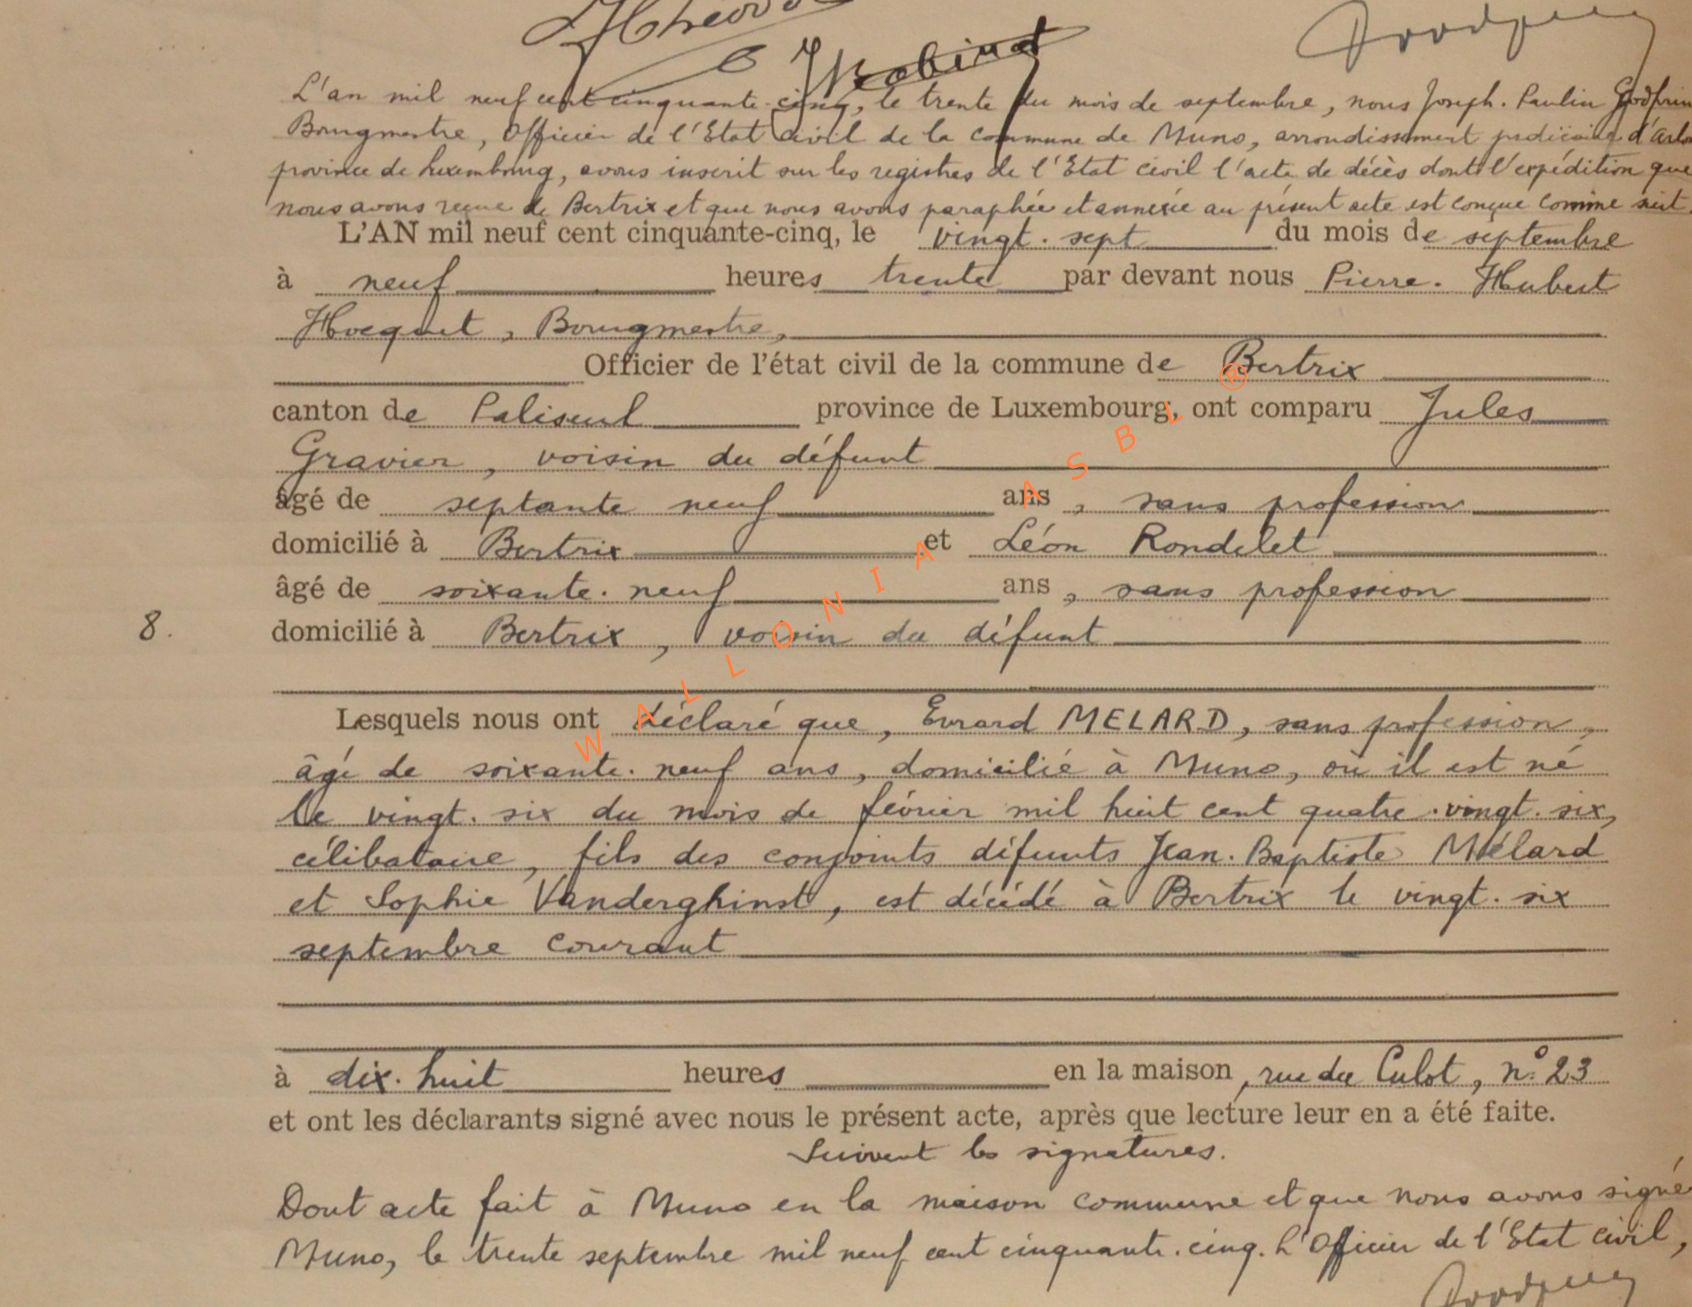 L'an mil neuf cent cinquante-cinq, le trente du mois de septembre, nous Joseph-Paulin Godfrin
Bourgmestre, Officier de l'Etat civil de la commune de Muno, arrondissement judiciaire d'Arlon
province de Luxembourg, avons inscrit sur les registres de l'Etat civil l'acte de décès dont l'expédition que
nous avons reçue de Bertrix et que nous avons paraphée et annexée au présent acte est conçue comme suit.
L'AN mil neuf cent cinquante-cinq, le vingt-sept du mois de septembre
à neuf heures trente par devant nous Pierre-Hubert
Hocquet, Bourgmestre,
Officier de l'état civil de la commune de Bertrix
canton de Paliseul province de Luxembourg, ont comparu Jules
Gravier, voisin du défunt
âgé de septante neuf ans, sans profession
domicilié à Bertrix et Léon Rondelet
âgé de soixante-neuf ans, sans profession
8. domicilié à Bertrix, voisin du défunt
Lesquels nous ont déclaré que, Evrard MELARD, sans profession,
âgé de soixante-neuf ans, domicilié à Muno, où il est né
le vingt-six du mois de février mil huit cent quatre-vingt-six,
célibataire, fils des conjoints défunts Jean-Baptiste Mélard
et Sophie Vanderghinst, est décédé à Bertrix le vingt-six
septembre courant
à dix-huit heures en la maison, rue du Culot, n° 23
et ont les déclarants signé avec nous le présent acte, après que lecture leur en a été faite.
Suivent les signatures.
Dont acte fait à Muno en la maison commune et que nous avons signé
Muno, le trente septembre mil neuf cent cinquante-cinq. L'Officier de l'Etat civil,
WALLONIA ASBL